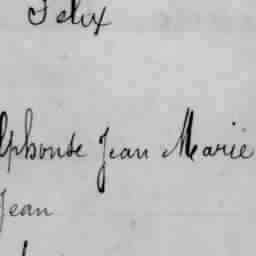 Felix
lphonse Jean Marie
Jean